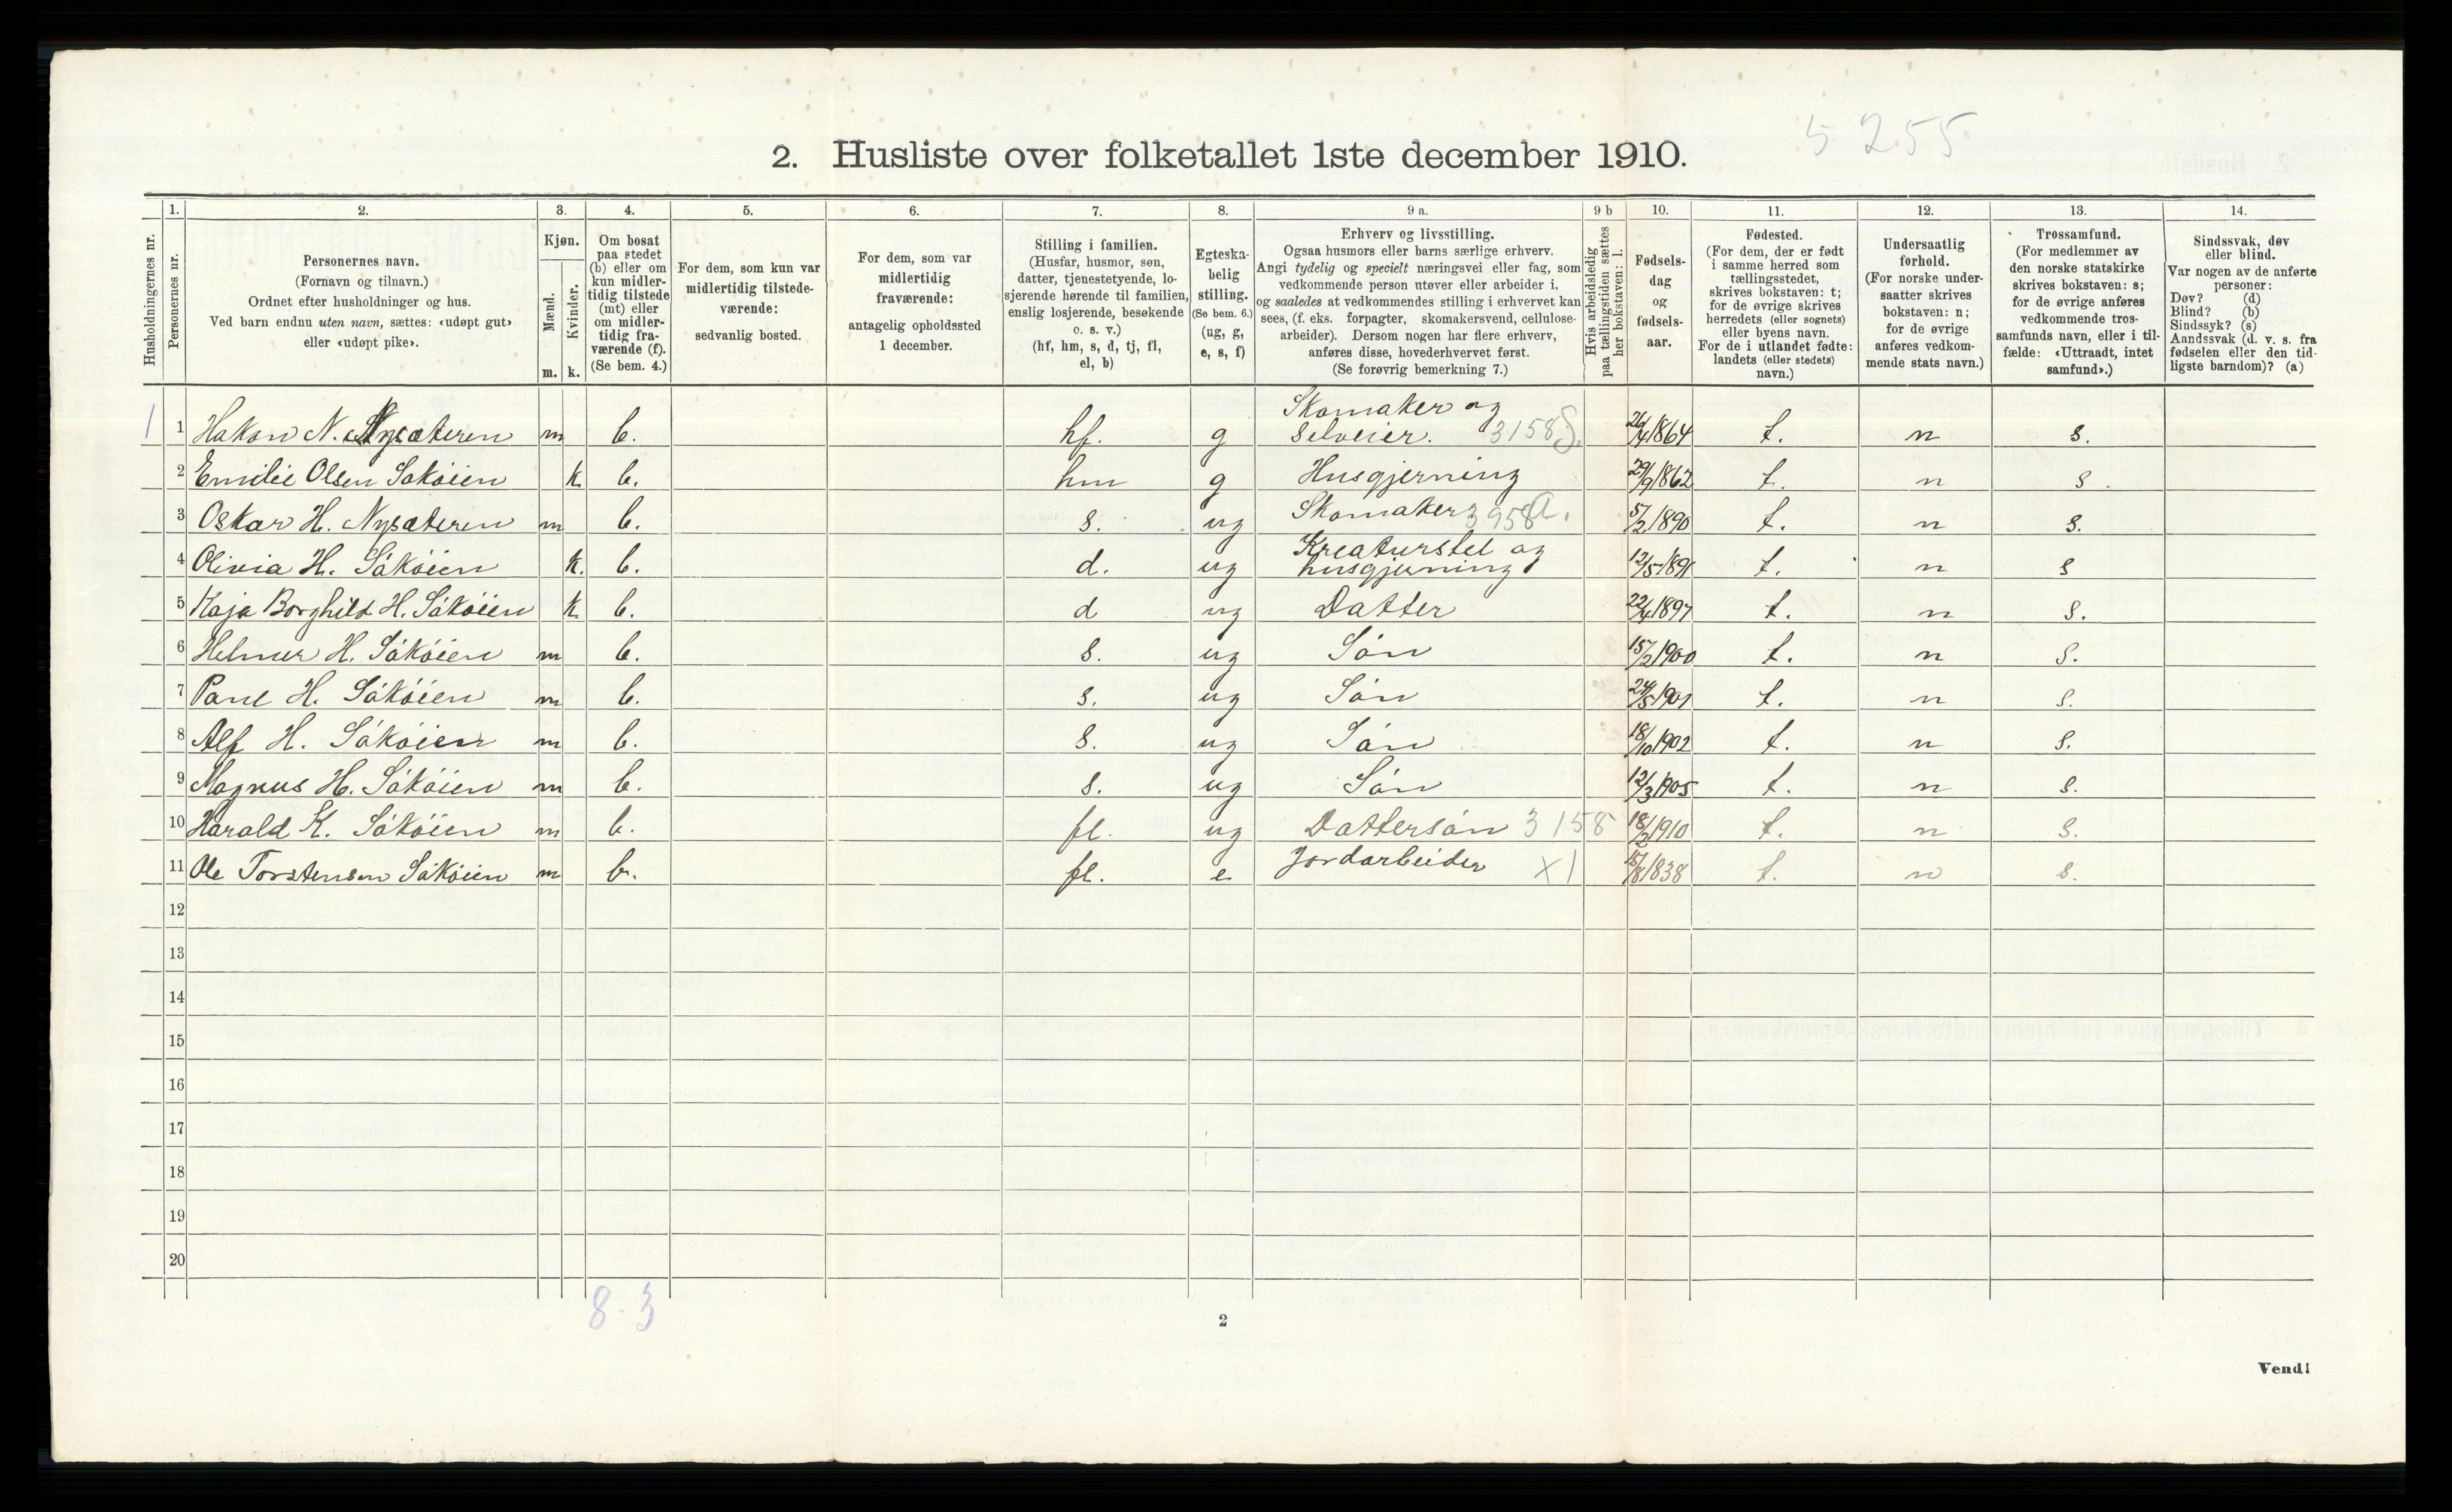 5255
2. Husliste over folketallet 1ste december 1910.
Husholdningernes nr.
1.
Personernes nr.
2.
Personernes navn.
(Fornavn og tilnavn.)
Ordnet efter husholdninger og hus.
Ved barn endnu uten navn, sættes: «udøpt gut»
eller «udøpt pike».
3.
Kjøn.
Mænd.
Kvinder.
m. k.
4.
Om bosat
paa stedet
(b) eller om
kun midler-
tidig tilstede
(mt) eller
om midler-
tidig fra-
værende (f).
(Se bem. 4.)
5.
For dem, som kun var
midlertidig tilstede-
værende:
sedvanlig bosted.
6.
For dem, som var
midlertidig
fraværende:
antagelig opholdssted
1 december.
7.
Stilling i familien.
(Husfar, husmor, søn,
datter, tjenestetyende, lo-
sjerende hørende til familien,
enslig losjerende, besøkende
o. s. v.)
(hf, hm, s, d, tj, fl,
el, b)
8.
Egteska-
belig
stilling.
(Se bem. 6.)
(ug, g,
e, s, f)
9 a.
Erhverv og livsstilling.
Ogsaa husmors eller barns særlige erhverv.
Angi tydelig og specielt næringsvei eller fag, som
vedkommende person utøver eller arbeider i,
og saaledes at vedkommendes stilling i erhvervet kan
sees, (f. eks. forpagter, skomakersvend, cellulose-
arbeider). Dersom nogen har flere erhverv,
anføres disse, hovederhvervet først.
(Se forøvrig bemerkning 7.)
9 b
Hvis arbeidsledig
paa tællingstiden sættes
her bokstaven: l.
10.
Fødsels-
dag
og
fødsels-
aar.
11.
Fødested.
(For dem, der er født
i samme herred som
tællingsstedet,
skrives bokstaven: t;
for de øvrige skrives
herredets (eller sognets)
eller byens navn.
For de i utlandet fødte:
landets (eller stedets)
navn.)
12.
Undersaatlig
forhold.
(For norske under-
saatter skrives
bokstaven: n;
for de øvrige
anføres vedkom-
mende stats navn.)
13.
Trossamfund.
(For medlemmer av
den norske statskirke
skrives bokstaven: s;
for de øvrige anføres
vedkommende tros-
samfunds navn, eller i til-
fælde: «Uttraadt, intet
samfund».)
14.
Sindssvak, døv
eller blind.
Var nogen av de anførte
personer:
Døv? (d)
Blind? (b)
Sindssyk? (s)
Aandssvak (d. v. s. fra
fødselen eller den tid-
ligste barndom)? (a)
1 1 Hakon N. Nysæteren m b. hf. g Skomaker og selveier. 3158 S. 26/4 1864 t. n s.
2 Emilie Olsen Sakøien k. b. hm g Husgjerning 29/9 1862 t. n s.
3 Oskar H. Nysæteren m b. s. ug Skomaker 3958 a. 5/2 1890 t. n s.
4 Olivia H. Såkøien k. b. d. ug Kreaturstel og husgjerning 12/5 1891 t. n s
5 Kaja Borghild H. Såkøien k. b. d ug Datter 22/4 1897 t. n s.
6 Helmer H. Såkøien m b. s. ug Søn 15/2 1900 t. n s.
7 Paul H. Såkøien m b. s. ug Søn 24/5 1901 t. n s.
8 Alf H. Såkøien m b. s. ug Søn 18/10 1902 t. n s.
9 Magnus H. Såkøien m b. s. ug Søn 12/3 1905 t. n s.
10 Harald K. Såkøien m b. fl. ug Dattersøn 3158 18/2 1910 t. n s.
11 Ole Torstensen Såkøien m b. fl. e Jordarbeider X1 15/8 1838 t. n s.
12
13
14
15
16
17
18
19
20
8-3
2
Vend!